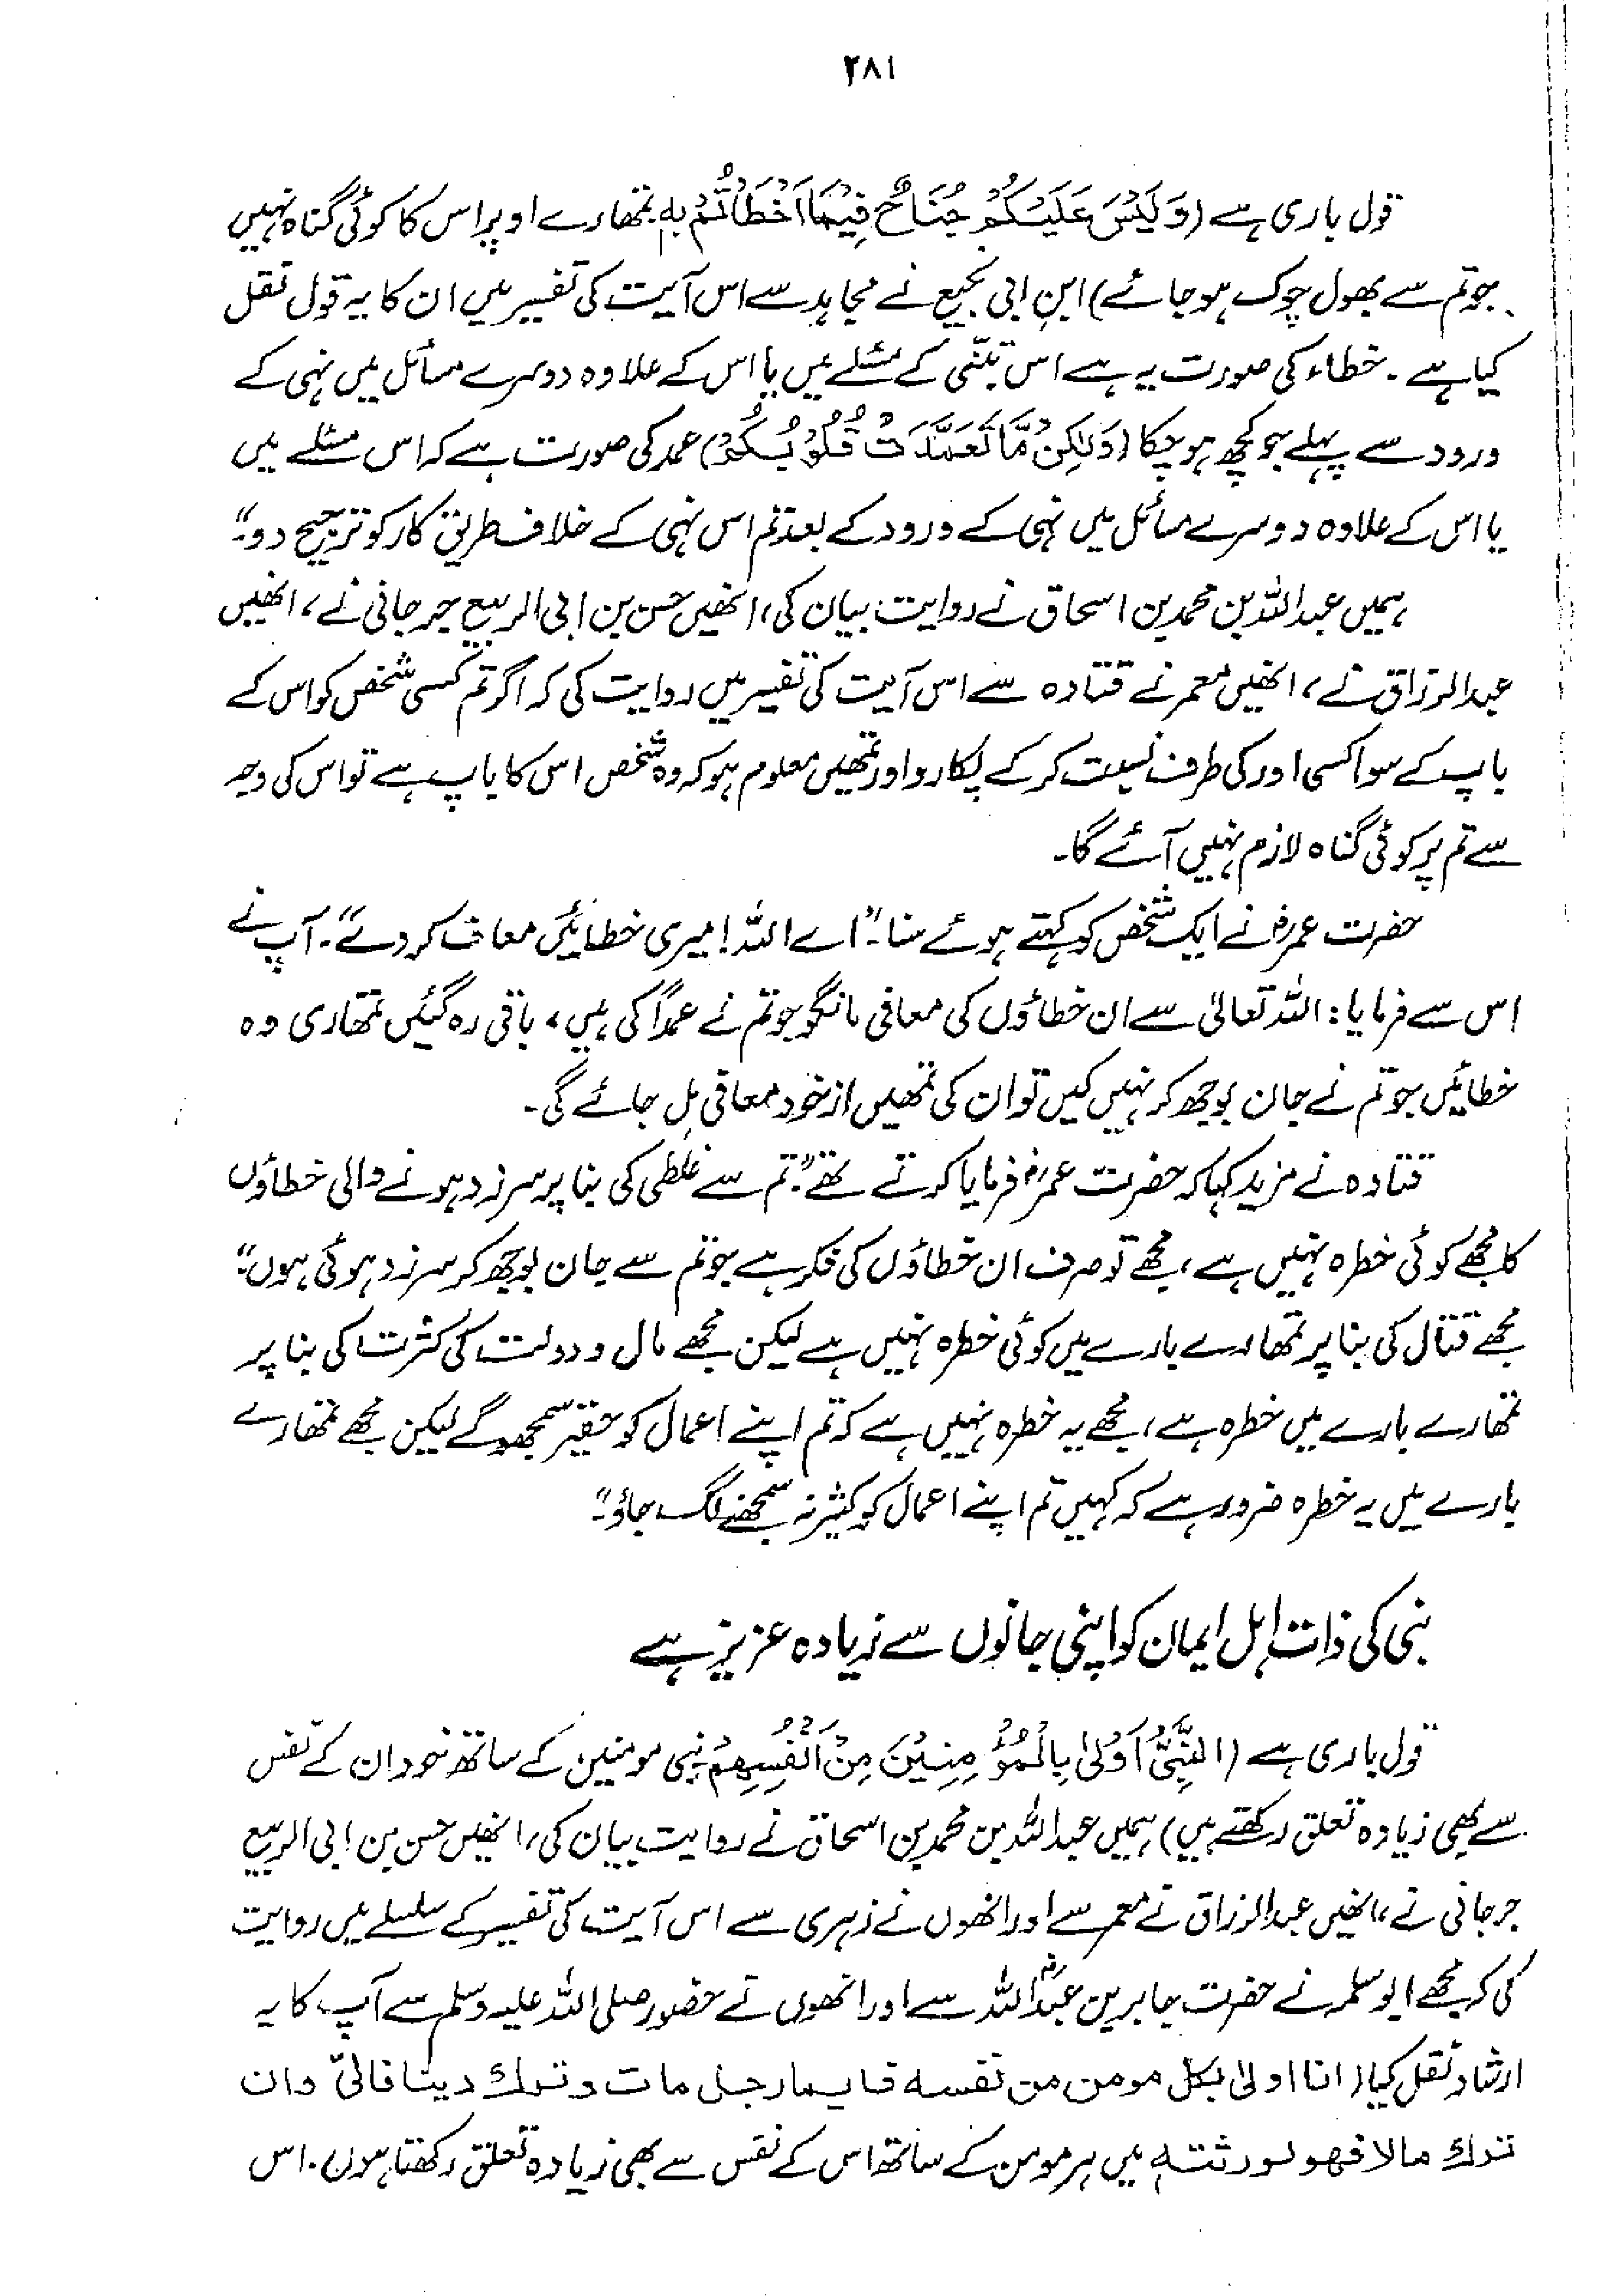 ۲۸۱
قول باری ہے (وَلَیْسَ عَلَیْکُمْ جُنَاحٌ فِیْمَا اَخْطَأْتُمْ بِہٖ تمھارے اوپر اس کا کوئی گناہ نہیں
جو تم سے بھول چوک ہو جائے) ابن ابی نجیح نے مجاہد سے اس آیت کی تفسیر میں ان کا یہ قول نقل
کیا ہے۔ خطاء کی صورت یہ ہے اس تبنّی کے مسئلے میں یا اس کے علاوہ دوسرے مسائل میں نہی کے
ورود سے پہلے جو کچھ ہو چکا (وَلٰکِنْ مَّا تَعَمَّدَتْ قُلُوْبُکُمْ) عمد کی صورت ہے کہ اس مسئلے میں
یا اس کے علاوہ دوسرے مسائل میں نہی کے ورود کے بعد تم اس نہی کے خلاف طریق کار کو ترجیح دو۔"
ہمیں عبداللہ بن محمد بن اسحاق نے روایت بیان کی، انھیں حسن بن ابی الربیع جرجانی نے، انھیں
عبدالرزاق نے، انھیں معمر نے قتادہ سے اس آیت کی تفسیر میں روایت کی کہ اگر تم کسی شخص کو اس کے
باپ کے سوا کسی اور کی طرف نسبت کر کے پکارو اور تمھیں معلوم ہو کہ وہ شخص اس کا باپ ہے تو اس کی وجہ
سے تم پر کوئی گناہ لازم نہیں آئے گا۔
حضرت عمرؓ نے ایک شخص کو کہتے ہوئے سنا۔" اے اللہ! میری خطائیں معاف کر دے"۔ آپ نے
اس سے فرمایا: اللہ تعالیٰ سے ان خطاؤں کی معافی مانگو جو تم نے عمداً کی ہیں، باقی رہ گئیں تمھاری وہ
خطائیں جو تم نے جان بوجھ کر نہیں کیں تو ان کی تمھیں از خود معافی مل جائے گی۔
قتادہ نے مزید کہا کہ حضرت عمرؓ فرمایا کرتے تھے "تم سے غلطی کی بنا پر سرزد ہونے والی خطاؤں
کا مجھے کوئی خطرہ نہیں ہے، مجھے تو صرف ان خطاؤں کی فکر ہے جو تم سے جان بوجھ کر سرزد ہوئی ہوں"
مجھے قتال کی بنا پر تمھارے بارے میں کوئی خطرہ نہیں ہے لیکن مجھے مال و دولت کی کثرت کی بنا پر
تمھارے بارے میں خطرہ ہے، مجھے یہ خطرہ نہیں ہے کہ تم اپنے اعمال کو حقیر سمجھو گے لیکن مجھے تمھارے
بارے میں یہ خطرہ ضرور ہے کہ کہیں تم اپنے اعمال کو کثیر نہ سمجھنے لگ جاؤ۔"
نبی کی ذات اہل ایمان کو اپنی جانوں سے زیادہ عزیز ہے
قول باری ہے (اَلنَّبِیُّ اَوْلیٰ بِالْمُؤْمِنِیْنَ مِنْ اَنْفُسِھِمْ نبی مومنین کے ساتھ خود ان کے نفس
سے بھی زیادہ تعلق رکھتے ہیں) ہمیں عبداللہ بن محمد بن اسحاق نے روایت بیان کی، انھیں حسن بن ابی الربیع
جرجانی نے، انھیں عبدالرزاق نے معمر سے اور انھوں نے زہری سے اس آیت کی تفسیر کے سلسلے میں روایت
کی کہ مجھے ابو سلمہ نے حضرت جابر بن عبداللہؓ سے اور انھوں نے حضور صلی اللہ علیہ وسلم سے آپ کا یہ
ارشاد نقل کیا (انا اولیٰ بکل مومن من نفسه فایما رجل مات وترک دینا فالیّ وان
ترک مالا فھو لورثته میں ہر مومن کے ساتھ اس کے نفس سے بھی زیادہ تعلق رکھتا ہوں۔ اس